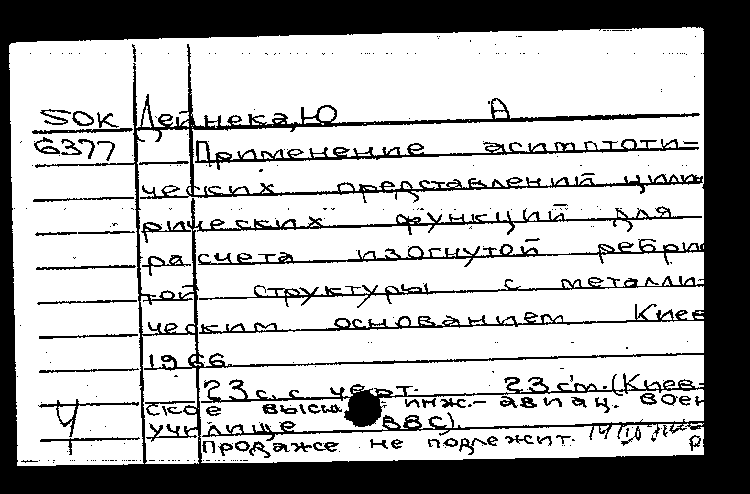 SOK Дейнека, Ю А
6377 Применение асимптоти=
ческих представлений цилинд
рических функций для
расчета изогнутой ребрис
той структуры с металли=
ческим основанием Киев
1966
23 с. с черт. 23 см. (Киев=
ское высш. инж.-авиац. воен
Ч училище ВВС).
Продаже не подлежит.